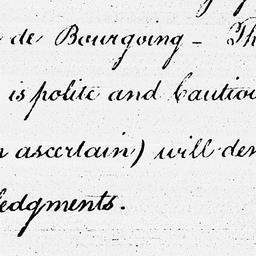 de Bourgoing - Th
is polite and Cautiou
ascertain) will den
ledgments.